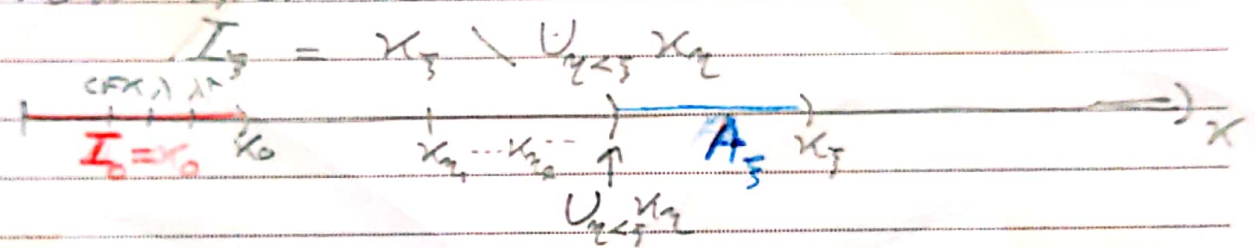 I_ξ = κ_ξ \ ∪_{η<ξ} κ_η
cf κ λ λ⁺
I_0 = κ_0 κ_0 κ_{η_1} ... κ_{η_2} ... A_ξ κ_ξ κ
∪_{η<ξ} κ_η